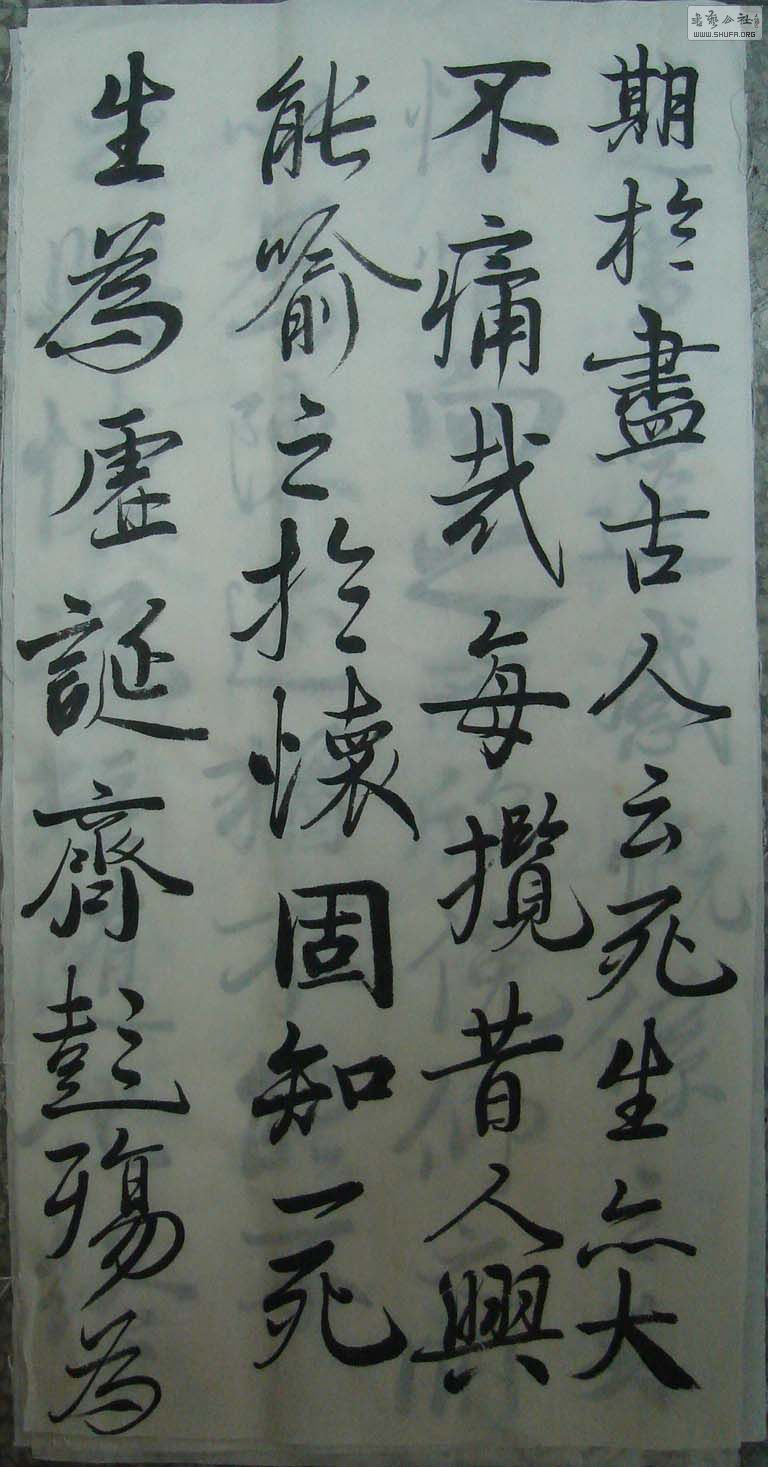 期於盡古人云死生亦大
不痛哉每攬昔人興
能喻之於懷固知一死
生為虛誕齊彭殤為
WWW.SHUFA.ORG